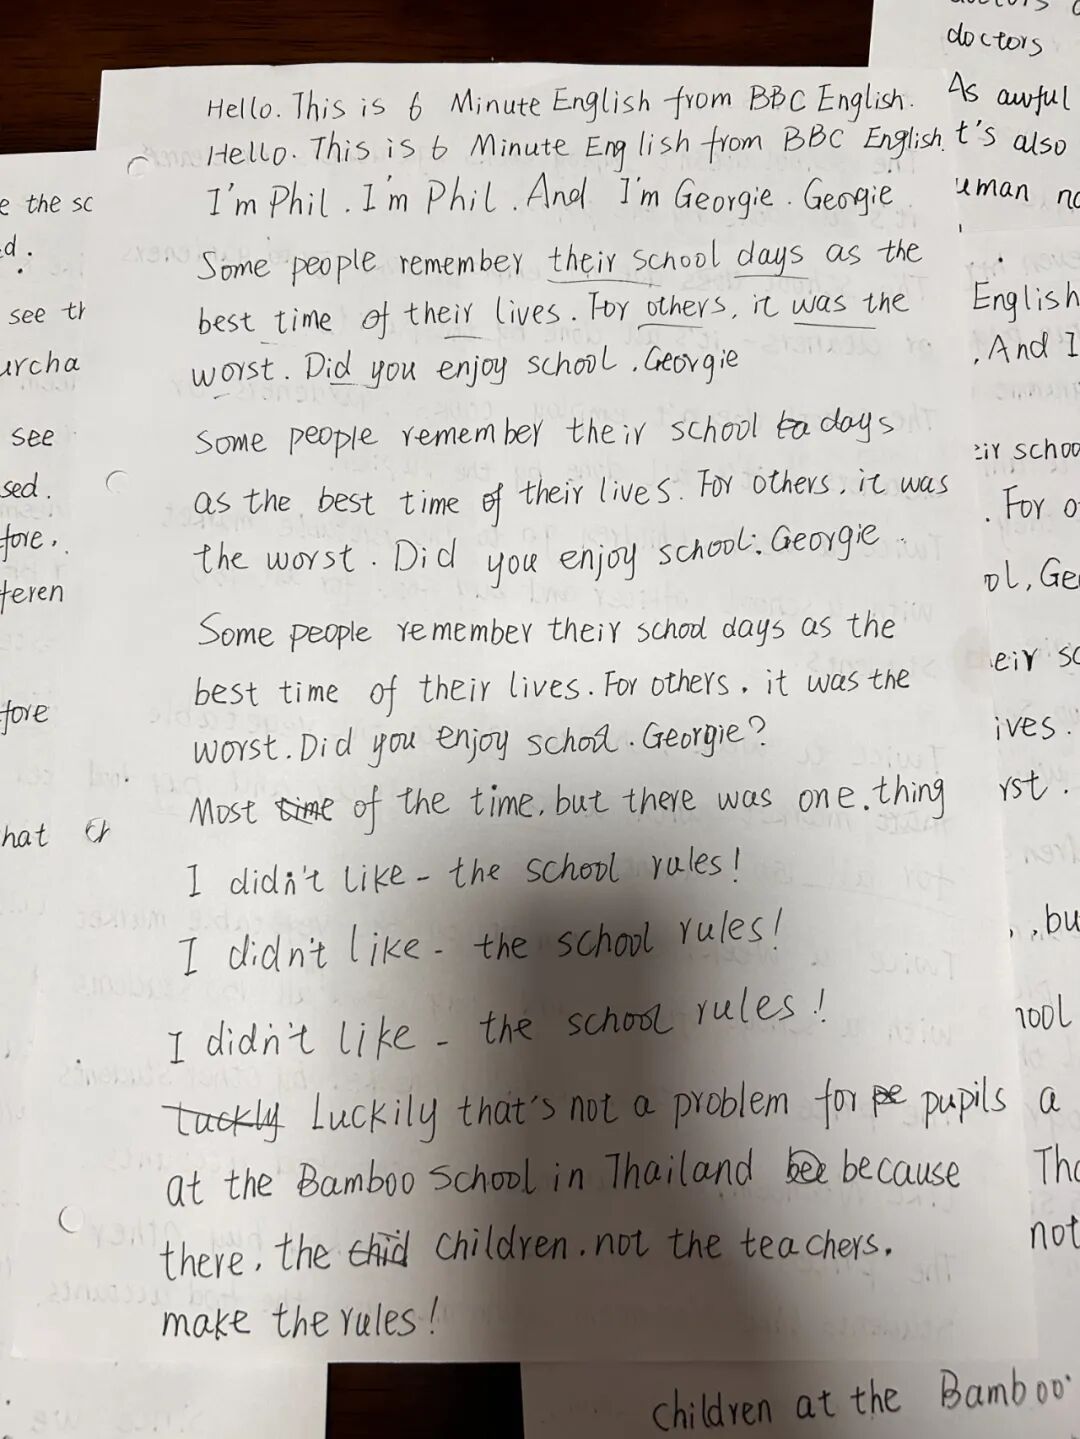 Hello. This is 6 Minute English from BBC English.
Hello. This is 6 Minute English from BBC English.
I'm Phil. I'm Phil. And I'm Georgie. Georgie
Some people remember their school days as the
best time of their lives. For others, it was the
worst. Did you enjoy school, Georgie
Some people remember their school days
as the best time of their lives. For others, it was
the worst. Did you enjoy school. Georgie
Some people remember their school days as the
best time of their lives. For others, it was the
worst. Did you enjoy school. Georgie?
Most time of the time, but there was one thing
I didn't like - the school rules!
I didn't like - the school rules!
I didn't like - the school rules!
Luckly Luckily that's not a problem for pe pupils
at the Bamboo School in Thailand bee because
there, the chid children, not the teachers.
make the rules!
e the sc
d.
see th
urcha
see
sed.
fore,
feren
fore
hat
doctors
As awful
t's also
uman
English
. And I
eir school
. For o
ol, Geo
eir sc
ives.
rst.
, but
hool
a
not
children at the Bamboo